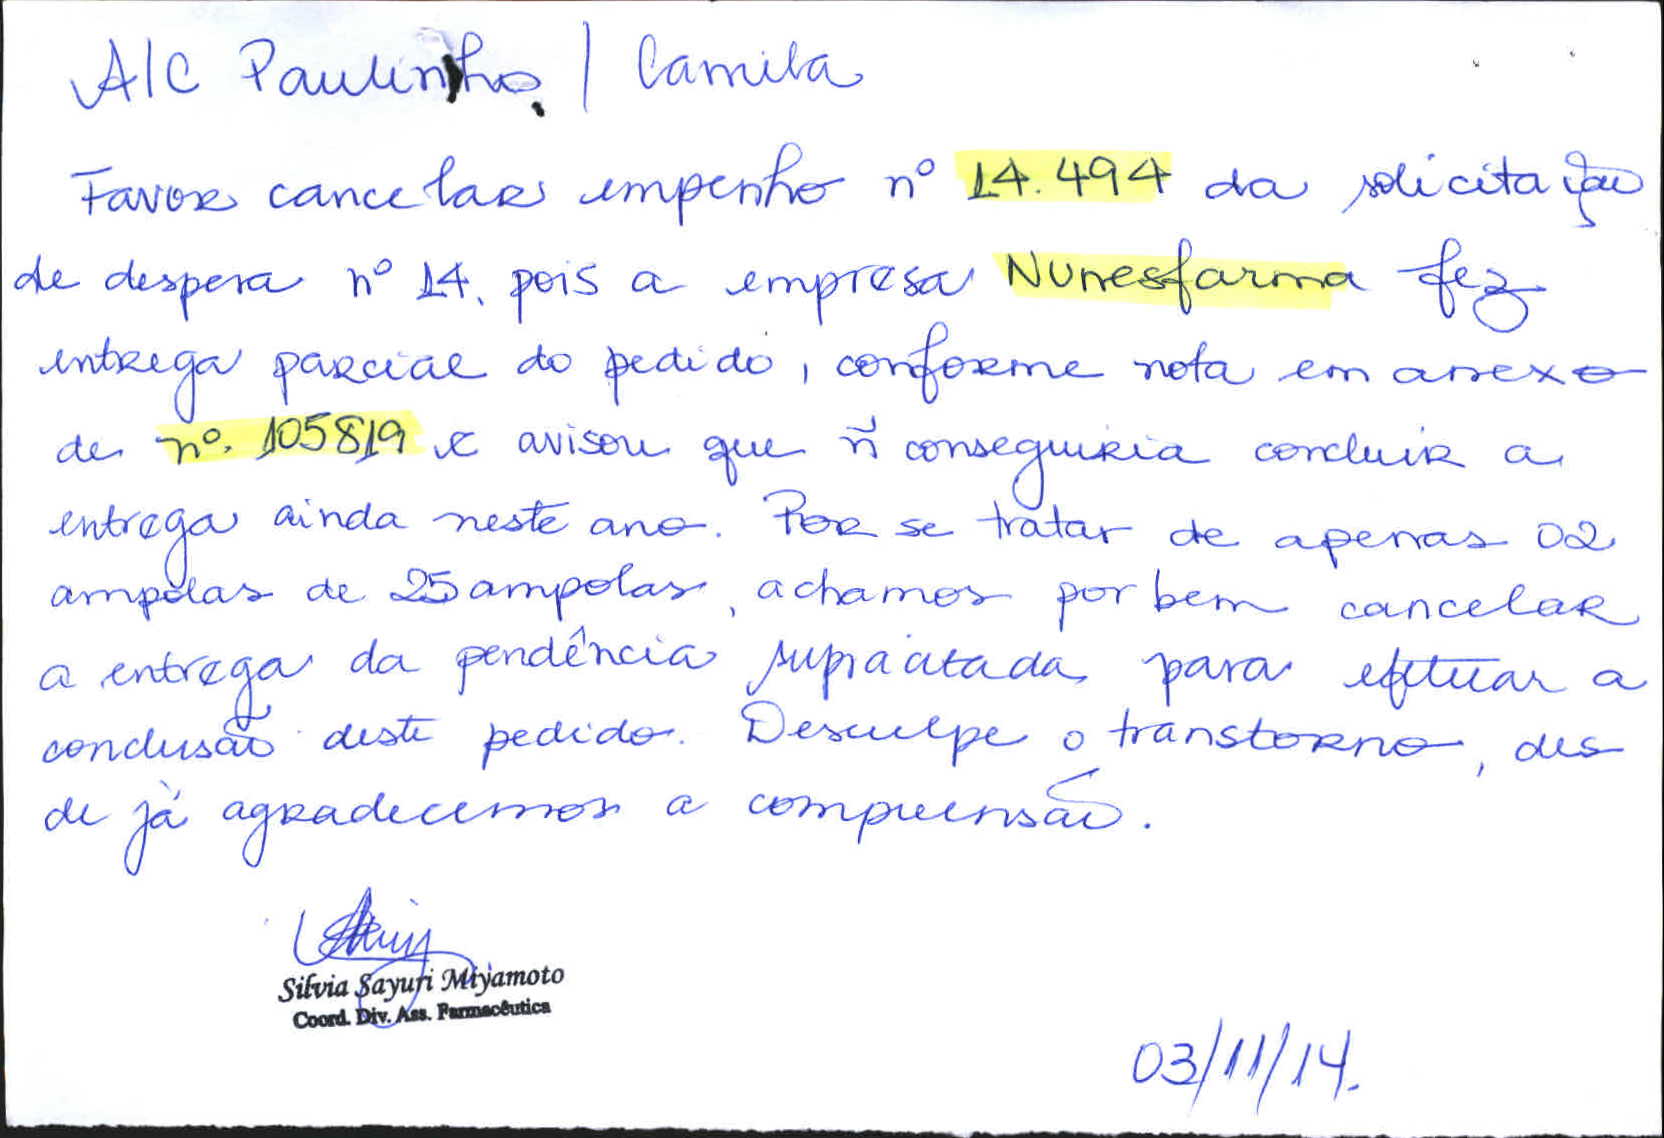 A/C Paulinho. / Camila
Favor cancelar empenho nº 14.494 da solicitação
de despesa nº 14. pois a empresa Nunesfarma fez
entrega parcial do pedido, conforme nota em anexo
de nº. 105819 e avisou que ñ conseguiria concluir a
entrega ainda neste ano. Por se tratar de apenas 02
ampolas de 25 ampolas, achamos por bem cancelar
a entrega da pendência supracitada para efetuar a
conclusão deste pedido. Desculpe o transtorno, des
de já agradecemos a compreensão.
Silvia Sayuri Miyamoto
Coord. Div. Ass. Farmacêutica
03/11/14.